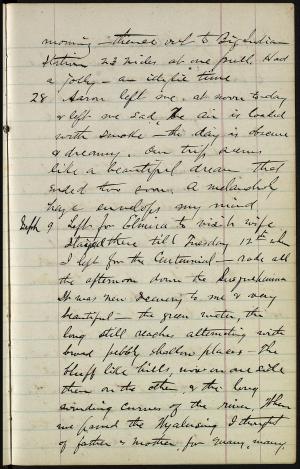 morning – thence out to Big Indian
Station 23 miles at one pull. Had
a jolly – an idyllic time
28 Aaron left me, at noon to-day
& left me sad. The air is loaded
with smoke – the day is obscure
& dreamy. Our trip seems
like a beautiful dream that
ended too soon. A melancholy
haze envelops my mind.
Sept 9 Left for Elmira to visit wife
Stayed there till Tuesday 12th when
I left for the Centennial – rode all
the afternoon down the Susquehanna
It was new scenery to me & very
beautiful – the green water, the
long still reaches alternating with
broad pebbly shallow places – The
bluff like hills, now on one side
then on the other, & the long
winding curves of the river. When
we passed the Wyalusing I thought
of father & mother, for many, many